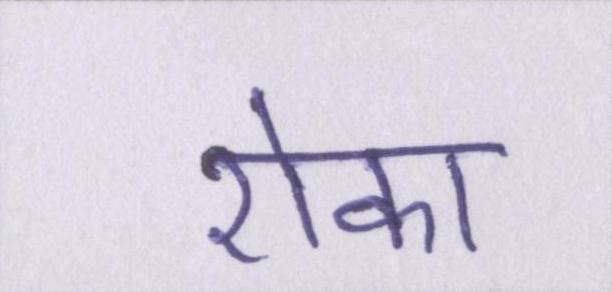 रोका